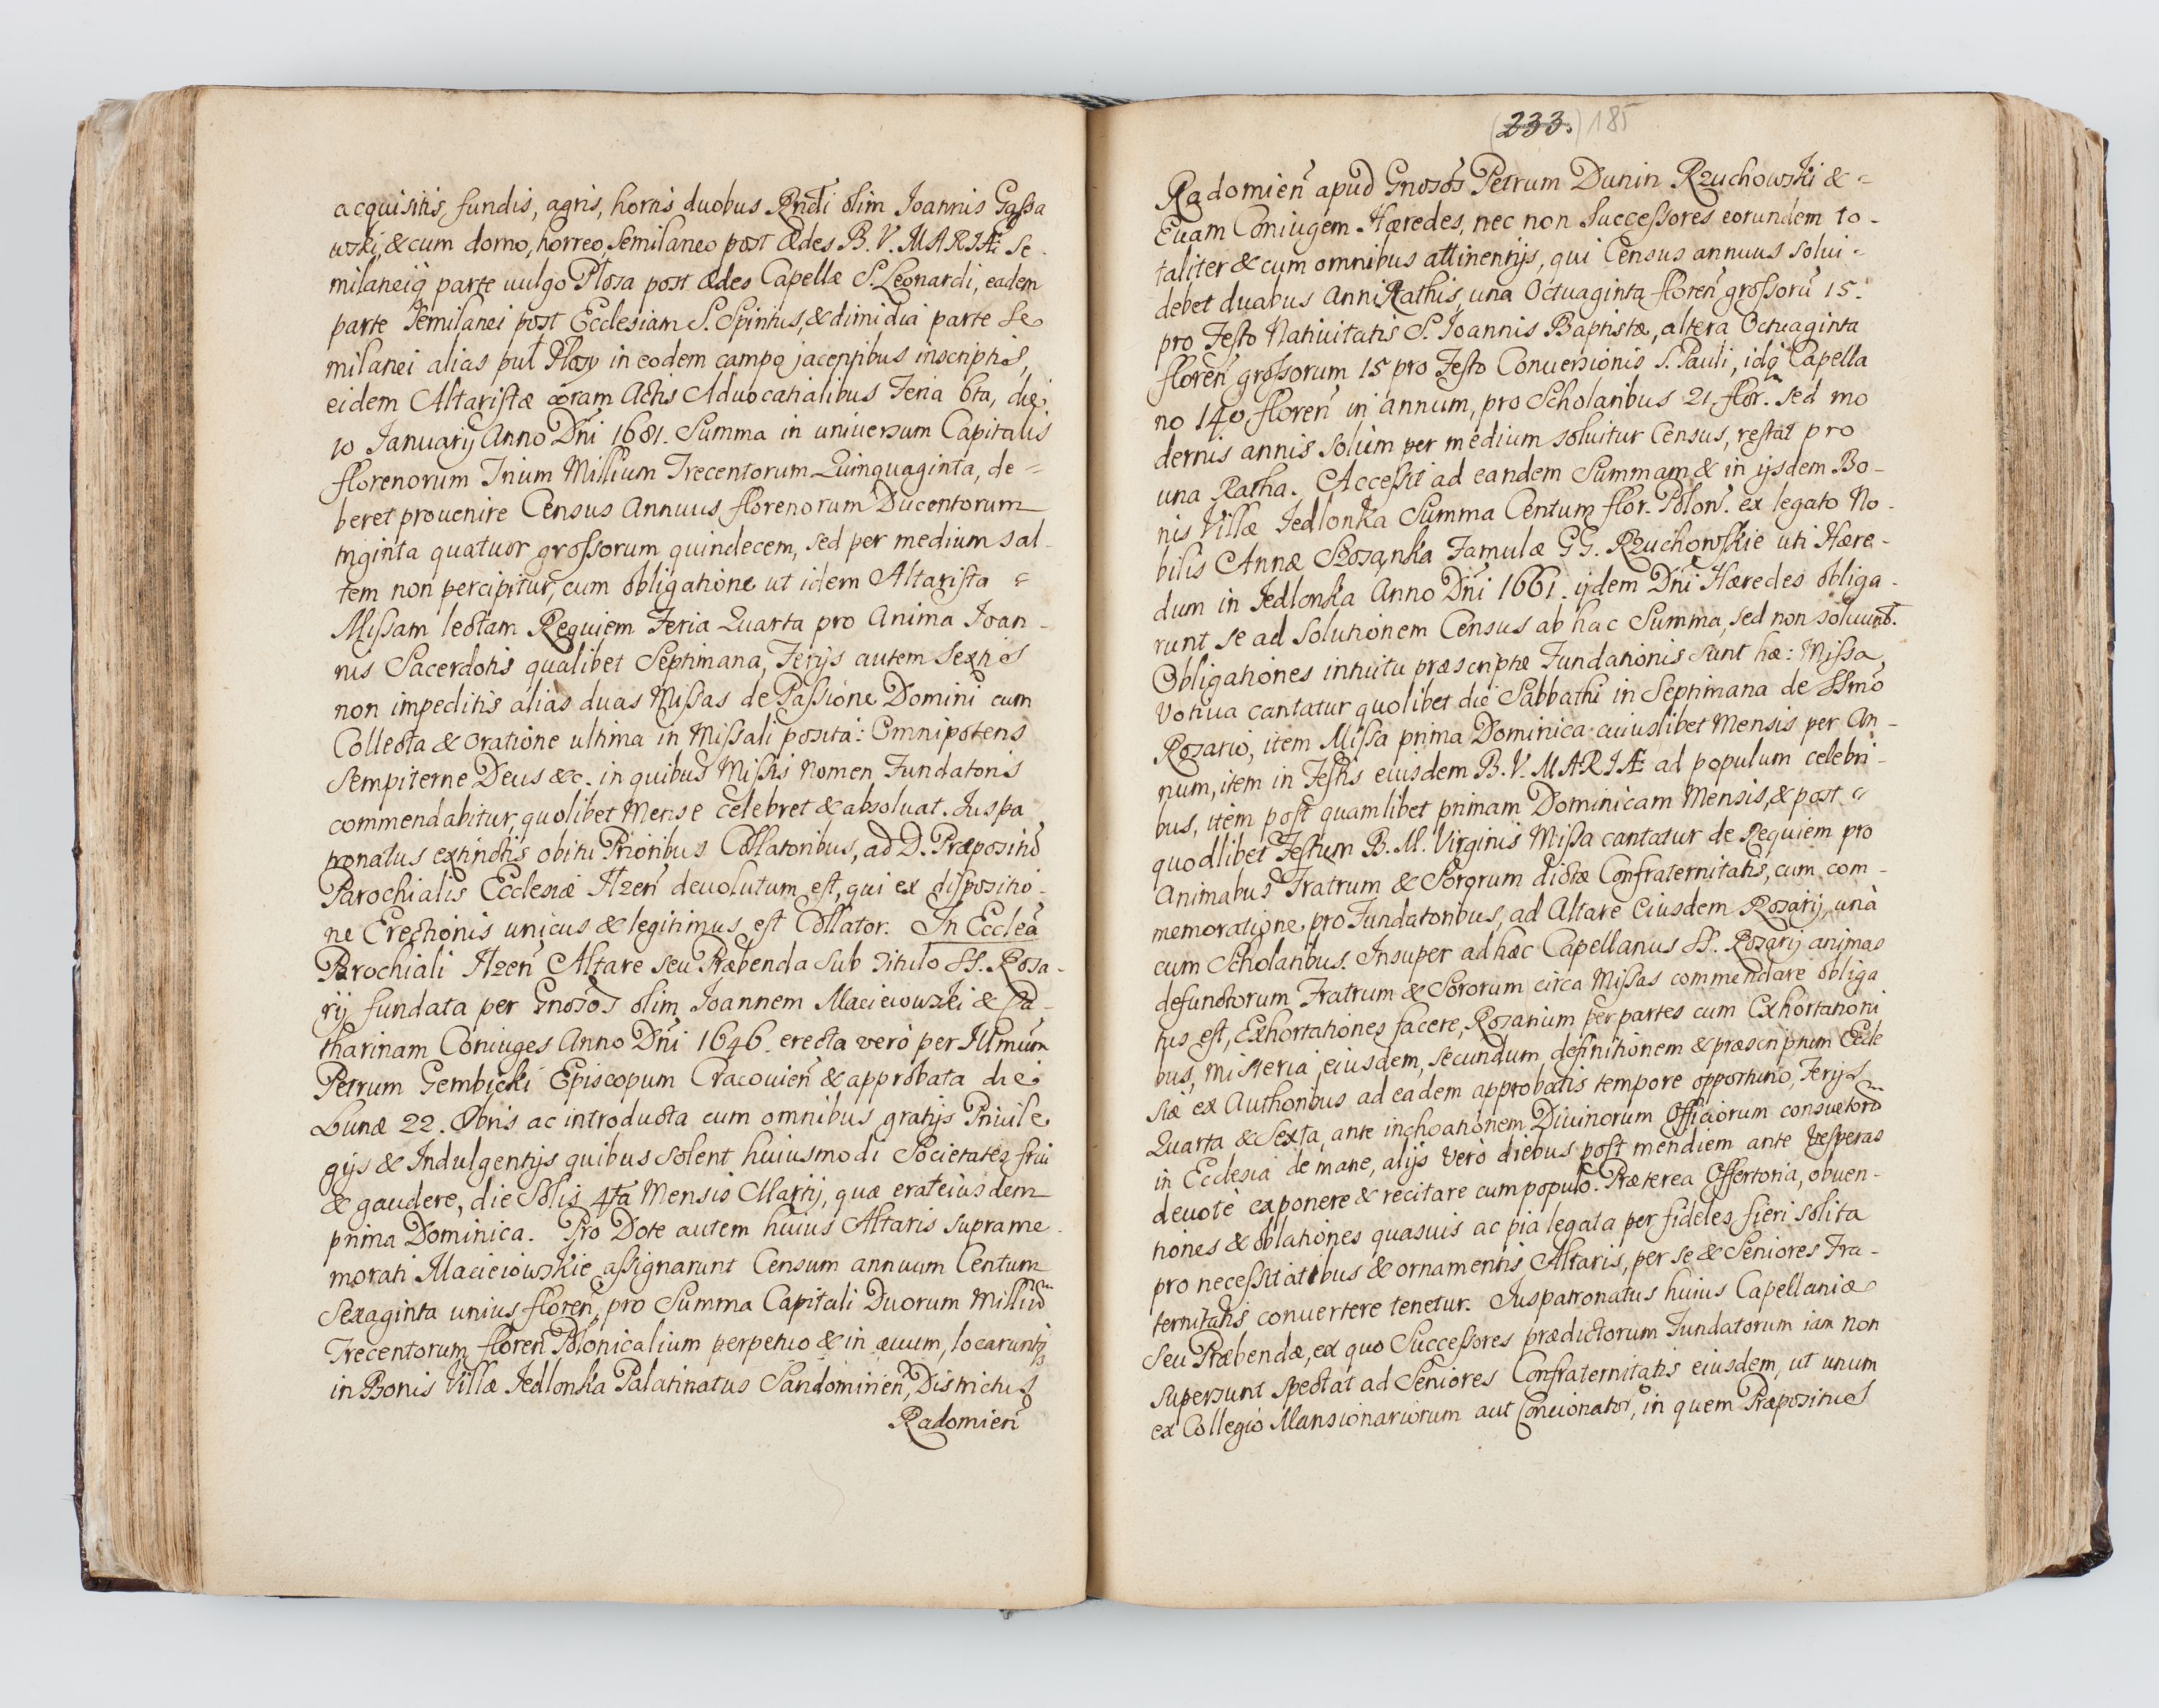 acquisitis, fundis, agris, hortis duobus Rndi olim Joannis Gassa
wski, & cum domo, horreo, Semilaneo post Ædes B. V. MARIÆ Se
milaneiq parte vulgo Płosa post Ædes Capellæ S. Leonardi, eadem
parte Semilanei post Ecclesiam S. Spiritus, & dimidia parte Se
milanei alias puł Płosy in eodem campo jacentibus inscriptis,
eidem Altaristæ coram Actis Advocatialibus Feria 6ta, die
10 Januarij Anno Dni 1681. Summa in universum Capitalis
florenorum Trium Millium Trecentorum Quinquaginta, de =
beret provenire Census Annuus florenorum Ducentorum
triginta quatuor grossorum quindecem, sed per medium sal-
tem non percipitur, cum obligatione ut idem Altarista =
Missam lectam Requiem Feria Quarta pro Anima Joan-
nis Sacerdotis qualibet Septimana, Ferijs autem Sextis
non impeditis alias duas Missas de Passione Domini cum
Collecta & Oratione ultima in Missali posita: Omnipotens
Sempiterne Deus &c. in quibus Missis Nomen Fundatoris
commendabitur, quolibet Mense celebret & absolvat. Juspa
tronatus extinctis obitu Prioribus Collatoribus, ad D. Præpositū
Parochialis Ecclesiæ Jlzen devolutum est, qui ex dispositio-
ne Erectionis unicus & legitimus est Collator. In Ecclea
Parochiali Jlzen Altare seu Præbenda sub titulo SS. Rosa-
rij fundata per Gnosos olim Joannem Maciejowski & Ca-
tharinam Coniuges Anno Dni 1646. erecta vero per Illmum
Petrum Gembicki Episcopum Cracovien & approbata die
Lunæ 22. Obris ac introducta cum omnibus gratijs Privile
gijs & Indulgentijs quibus solent huiusmodi Societates frui
& gaudere, die Solis 4ta Mensis Martij, quæ erat eiusdem
prima Dominica. Pro Dote autem huius Altaris supra me-
morati Maciejowskie assignarunt Censum annuum Centum
Sexaginta unius floren, pro Summa Capitali Duorum Milliū
Trecentorum floren Polonicalium perpetuo & in ævum, locaruntq
in Bonis Villæ Jedlonka Palatinatus Sandomirien, Districtus
Radomien
(233.) 185
Radomien apud Gnosos Petrum Dunin Rzuchowski & =
Evam Coniugem Hæredes, nec non Successores eorundem to-
taliter & cum omnibus attinentijs, qui Census annuus solvi =
debet duabus Anni Rathis, una Octuaginta floren grossorū 15.
pro Festo Nativitatis S. Joannis Baptistæ, altera Octuaginta
floren grossorum 15 pro Festo Conversionis S. Pauli, idq Capella
no 140 floren in annum, pro Scholaribus 21. flor. sed mo
dernis annis solùm per medium solvitur Census, restat pro
una Ratha. Accessit ad eandem Summam & in ijsdem Bo-
nis Villæ Jedlonka Summa Centum flor. Polon. ex legato No-
bilis Annæ Famulæ GG. Rzuchowskie uti Hære-
dum in Jedlonka Anno Dni 1661. ijdem Dni Hæredes obliga-
runt se ad Solutionem Census ab hac Summa, sed non solvunt.
Obligationes intuitu præscriptæ Fundationis sunt hæ: Missa
Votiva cantatur quolibet die Sabbathi in Septimana de SSmo
Rosario, item Missa prima Dominica cuiuslibet Mensis per An-
num, item in Festis eiusdem B. V. MARIÆ ad populum celebri-
bus, item post quamlibet primam Dominicam Mensis, & post =
quodlibet Festum B. M. Virginis Missa cantatur de Requiem pro
Animabus Fratrum & Sororum dictæ Confraternitatis, cum com-
memoratione, pro Fundatoribus, ad Altare Eiusdem Rosarij, unà
cum Scholaribus. Insuper ad hæc Capellanus SS. Rosarij animas
defunctorum Fratrum & Sororum circa Missas commendare obliga
tus est, Exhortationes facere, Rosarium per partes cum Exhortationi
bus, misteria eiusdem, secundum definitionem & præscriptum Eccle
siæ ex Authoribus ad eadem approbatis tempore opportuno, Ferijs
Quarta & Sexta, ante inchoationem Divinorum Officiorum consuetorū
in Ecclesia de mane, alijs verò diebus post meridiem ante Vesperas
devotè exponere & recitare cum populo. Præterea Offertoria, obven-
tiones & oblationes quasvis ac pia legata per fideles fieri solita
pro necessitatibus & ornamentis Altaris, per se & Seniores Fra-
ternitatis convertere tenetur. Juspatronatus huius Capellaniæ
seu Præbendæ, ex quo Successores prædictorum Fundatorum iam non
supersunt spectat ad Seniores Confraternitatis eiusdem, ut unum
ex Collegio Mansionariorum aut Concionator, in quem Præpositus